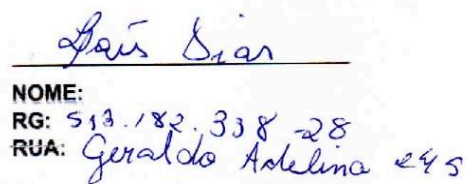 Laís Dias
NOME:
RG: 513.182.338-28
RUA: Geraldo Adelina 245